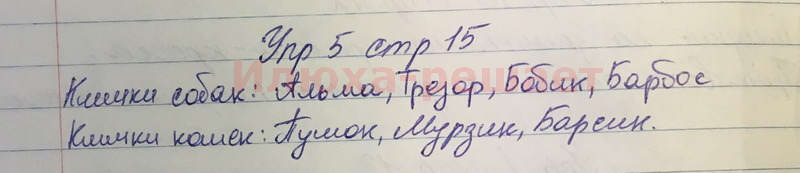 Упр 5 стр 15
Илюха-решает
Клички собак: Альма, Трезор, Бобик, Барбос
Клички кошек: Пушок, Мурзик, Барсик.